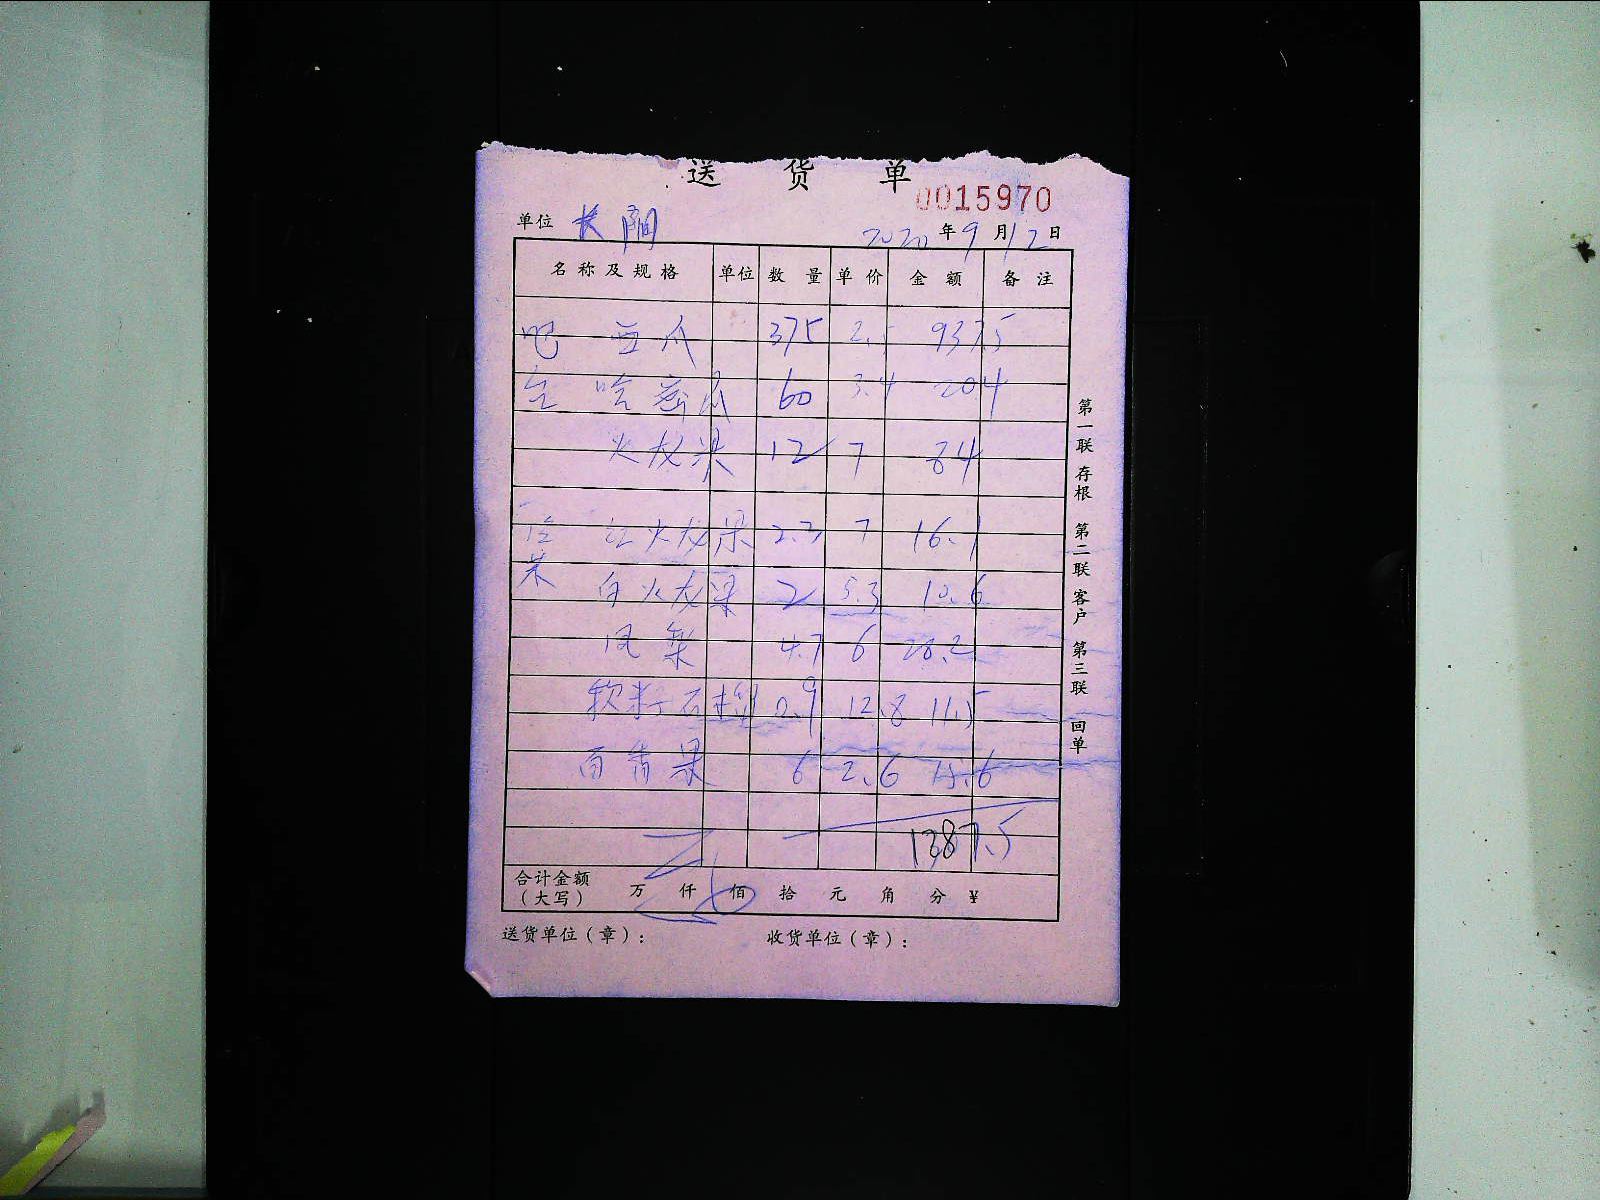 送 货 单
0015970
单位 长
2020 年 9 月 12 日
名称及规格 单位 数量 单价 金额 备注
吧 西瓜 375 2.5 937.5
哈密瓜 60 3.4 204
火龙果 12 7 84
红火龙果 2.3 7 16.1
白火龙果 2 5.3 10.6
凤梨 4.7 6 28.2
软籽石榴 0.9 12.8 11.5
百香果 6 2.6 15.6
1387.5
合计金额
(大写) 万 仟 佰 拾 元 角 分 ¥
送货单位(章): 收货单位(章):
第一联 存根 第二联 客户 第三联 回单